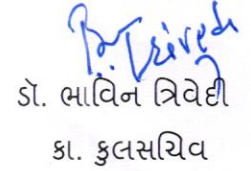 B. Trivedi
ડૉ. ભાવિન ત્રિવેદી
કા. કુલસચિવ